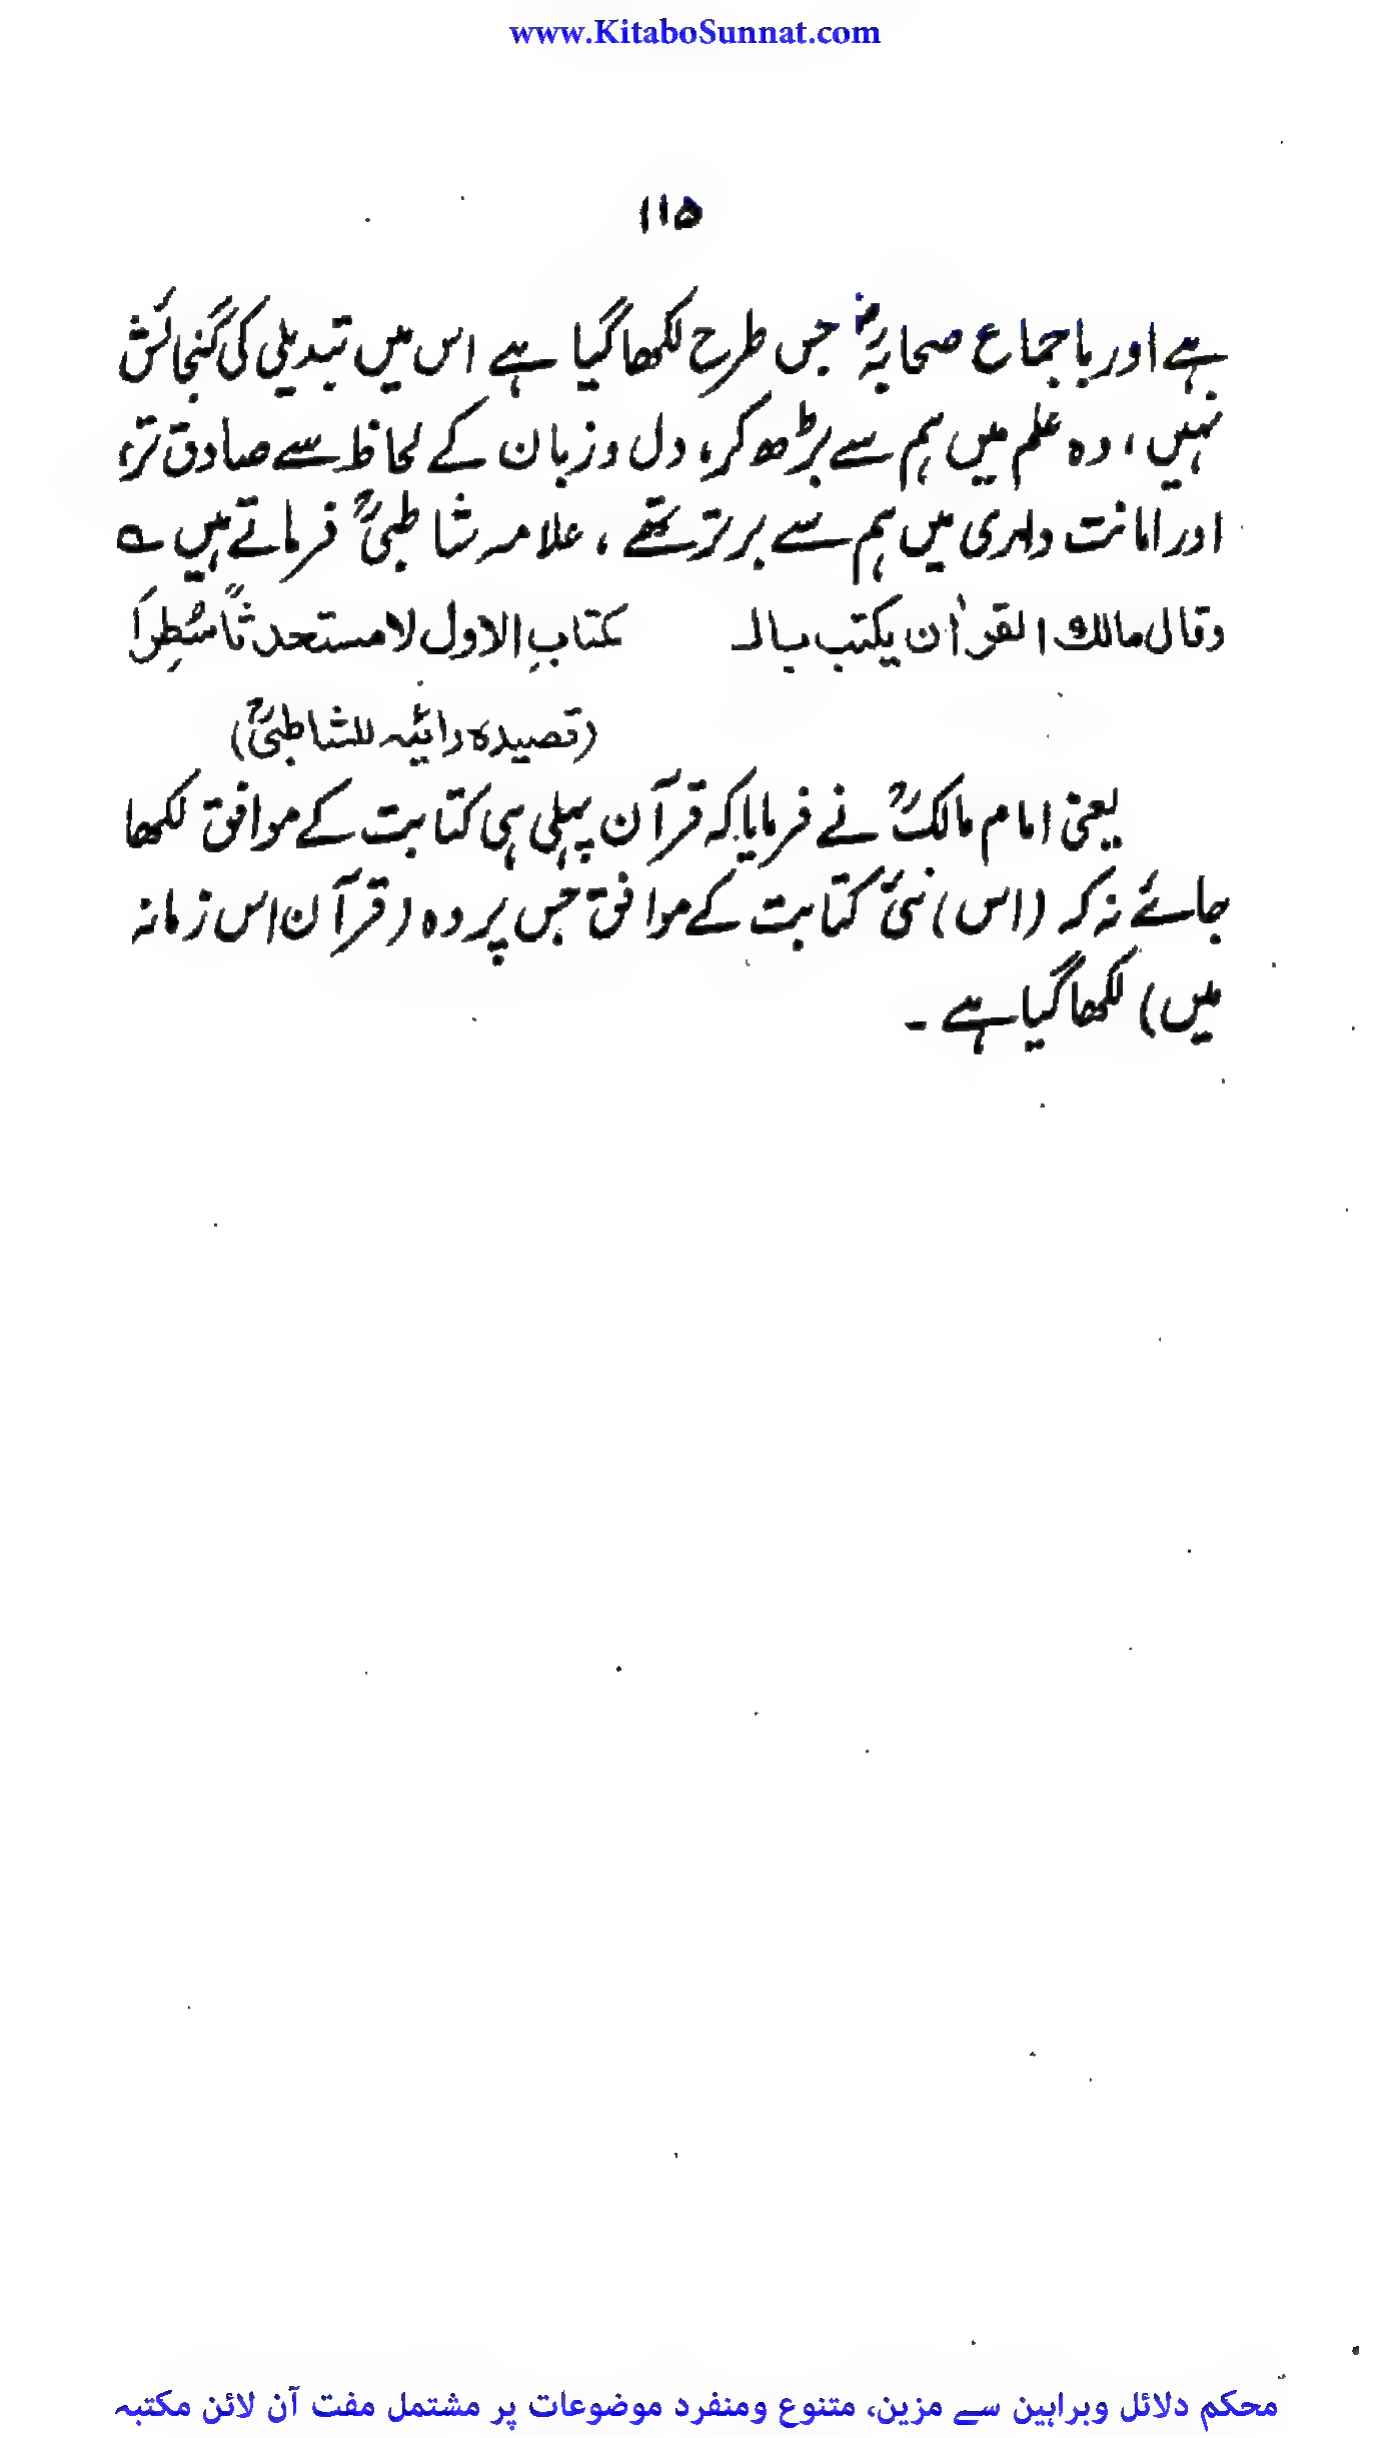 www.KitaboSunnat.com
۱۱۵
ہے اور باجماع صحابہؓ جس طرح لکھا گیا ہے اس میں تبدیلی کی گنجائش
نہیں، وہ علم میں ہم سے بڑھ کر، دل وزبان کے لحاظ سے صادق تر،
اور امانت داری میں ہم سے برتر تھے، علامہ شاطبیؒ فرماتے ہیں ؎
وقال مالك القراٰن يكتب بالـ كتابِ الاول لا مستحدثاً سُطِراَ
(قصیدہ رائیہ للشاطبیؒ)
یعنی امام مالکؒ نے فرمایا کہ قرآن پہلی ہی کتابت کے موافق لکھا
جائے نہ کہ (اس) نئی کتابت کے موافق جس پر وہ (قرآن اس زمانہ
میں) لکھا گیا ہے ۔
محکم دلائل وبراہین سے مزین، متنوع ومنفرد موضوعات پر مشتمل مفت آن لائن مکتبہ